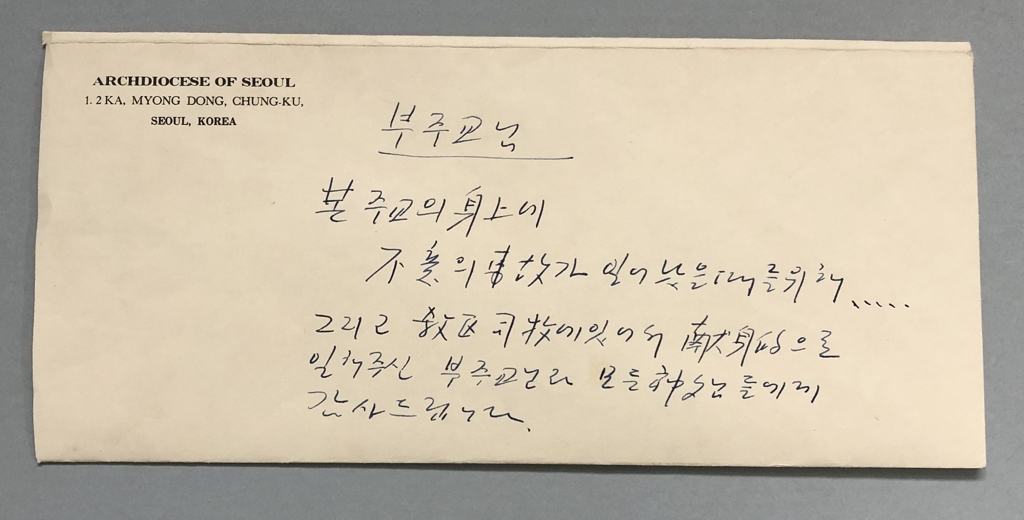 ARCHDIOCESE OF SEOUL
1. 2 KA, MYONG DONG, CHUNG-KU,
SEOUL, KOREA
부주교님
본 주교의 身上에
不意의 事故가 일어 났을 때를 위해.....
그리고 敎区司牧에 있어서 献身的으로
일해주신 부주교님과 모든 神父님들에게
감사드립니다.